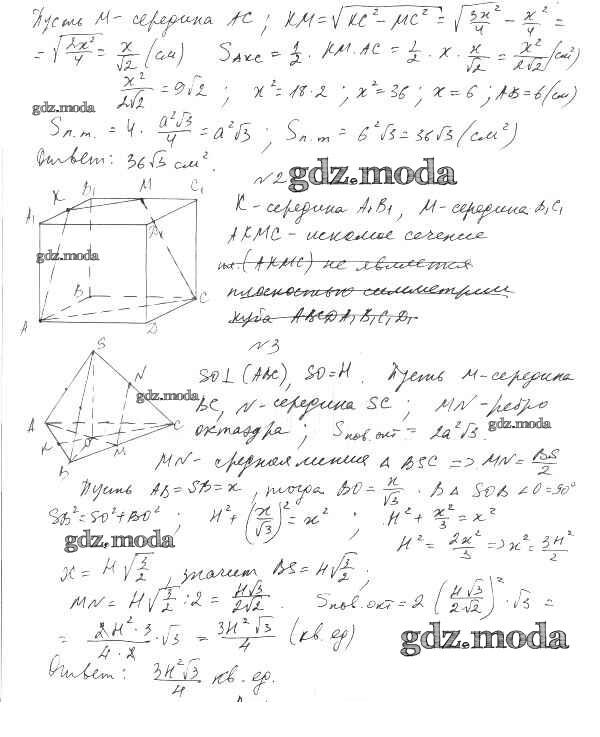 Пусть М- середина АС; КМ=√(КС² − МС²) = √(3x²/4 − x²/4) =
= √(2x²/4) = x/√2 (см) S АКС = 1/2 · КМ · АС = 1/2 · x · x/√2 = x²/2√2 (см²)
x²/2√2 = 9√2 ; x² = 18·2 ; x² = 36 ; x = 6 ; АВ = 6 (см)
gdz.moda
Sп.т. = 4 · a²√3/4 = a²√3 ; Sп.т = 6²√3 = 36√3 (см²)
Ответ: 36√3 см².
№2 gdz.moda
К- середина А₁В₁, М- середина В₁С₁
АКМС - искомое сечение
пл. (АКМС) не является
плоскостью симметрии
куба АВСDA₁B₁C₁D₁
К В₁ М С₁
А₁ D₁
gdz.moda
В С
А D
№3
SO⊥(АВС), SO=Н. Пусть М- середина
ВС, N- середина SC ; MN- ребро
октаэдра ; Sпов.окт = 2a²√3.
gdz.moda
S
N
gdz.moda
А С
К О М
В
MN- средняя линия Δ BSC => MN = BS/2
Пусть АВ=SB=x, тогда ВО = x/√3 . В Δ SOB ∠O=90°
SB²=SO²+BO² ; H²+(x/√3)²=x² ; H²+x²/3=x²
gdz.moda
H² = 2x²/3 => x² = 3H²/2
x = H√(3/2), значит BS = H√(3/2) ;
MN = H√(3/2) : 2 = H√3/2√2 . Sпов.окт = 2(H√3/2√2)² · √3 =
= 2H²·3/4·2 · √3 = 3H²√3/4 (кв. ед)
gdz.moda
Ответ: 3H²√3/4 кв. ед.